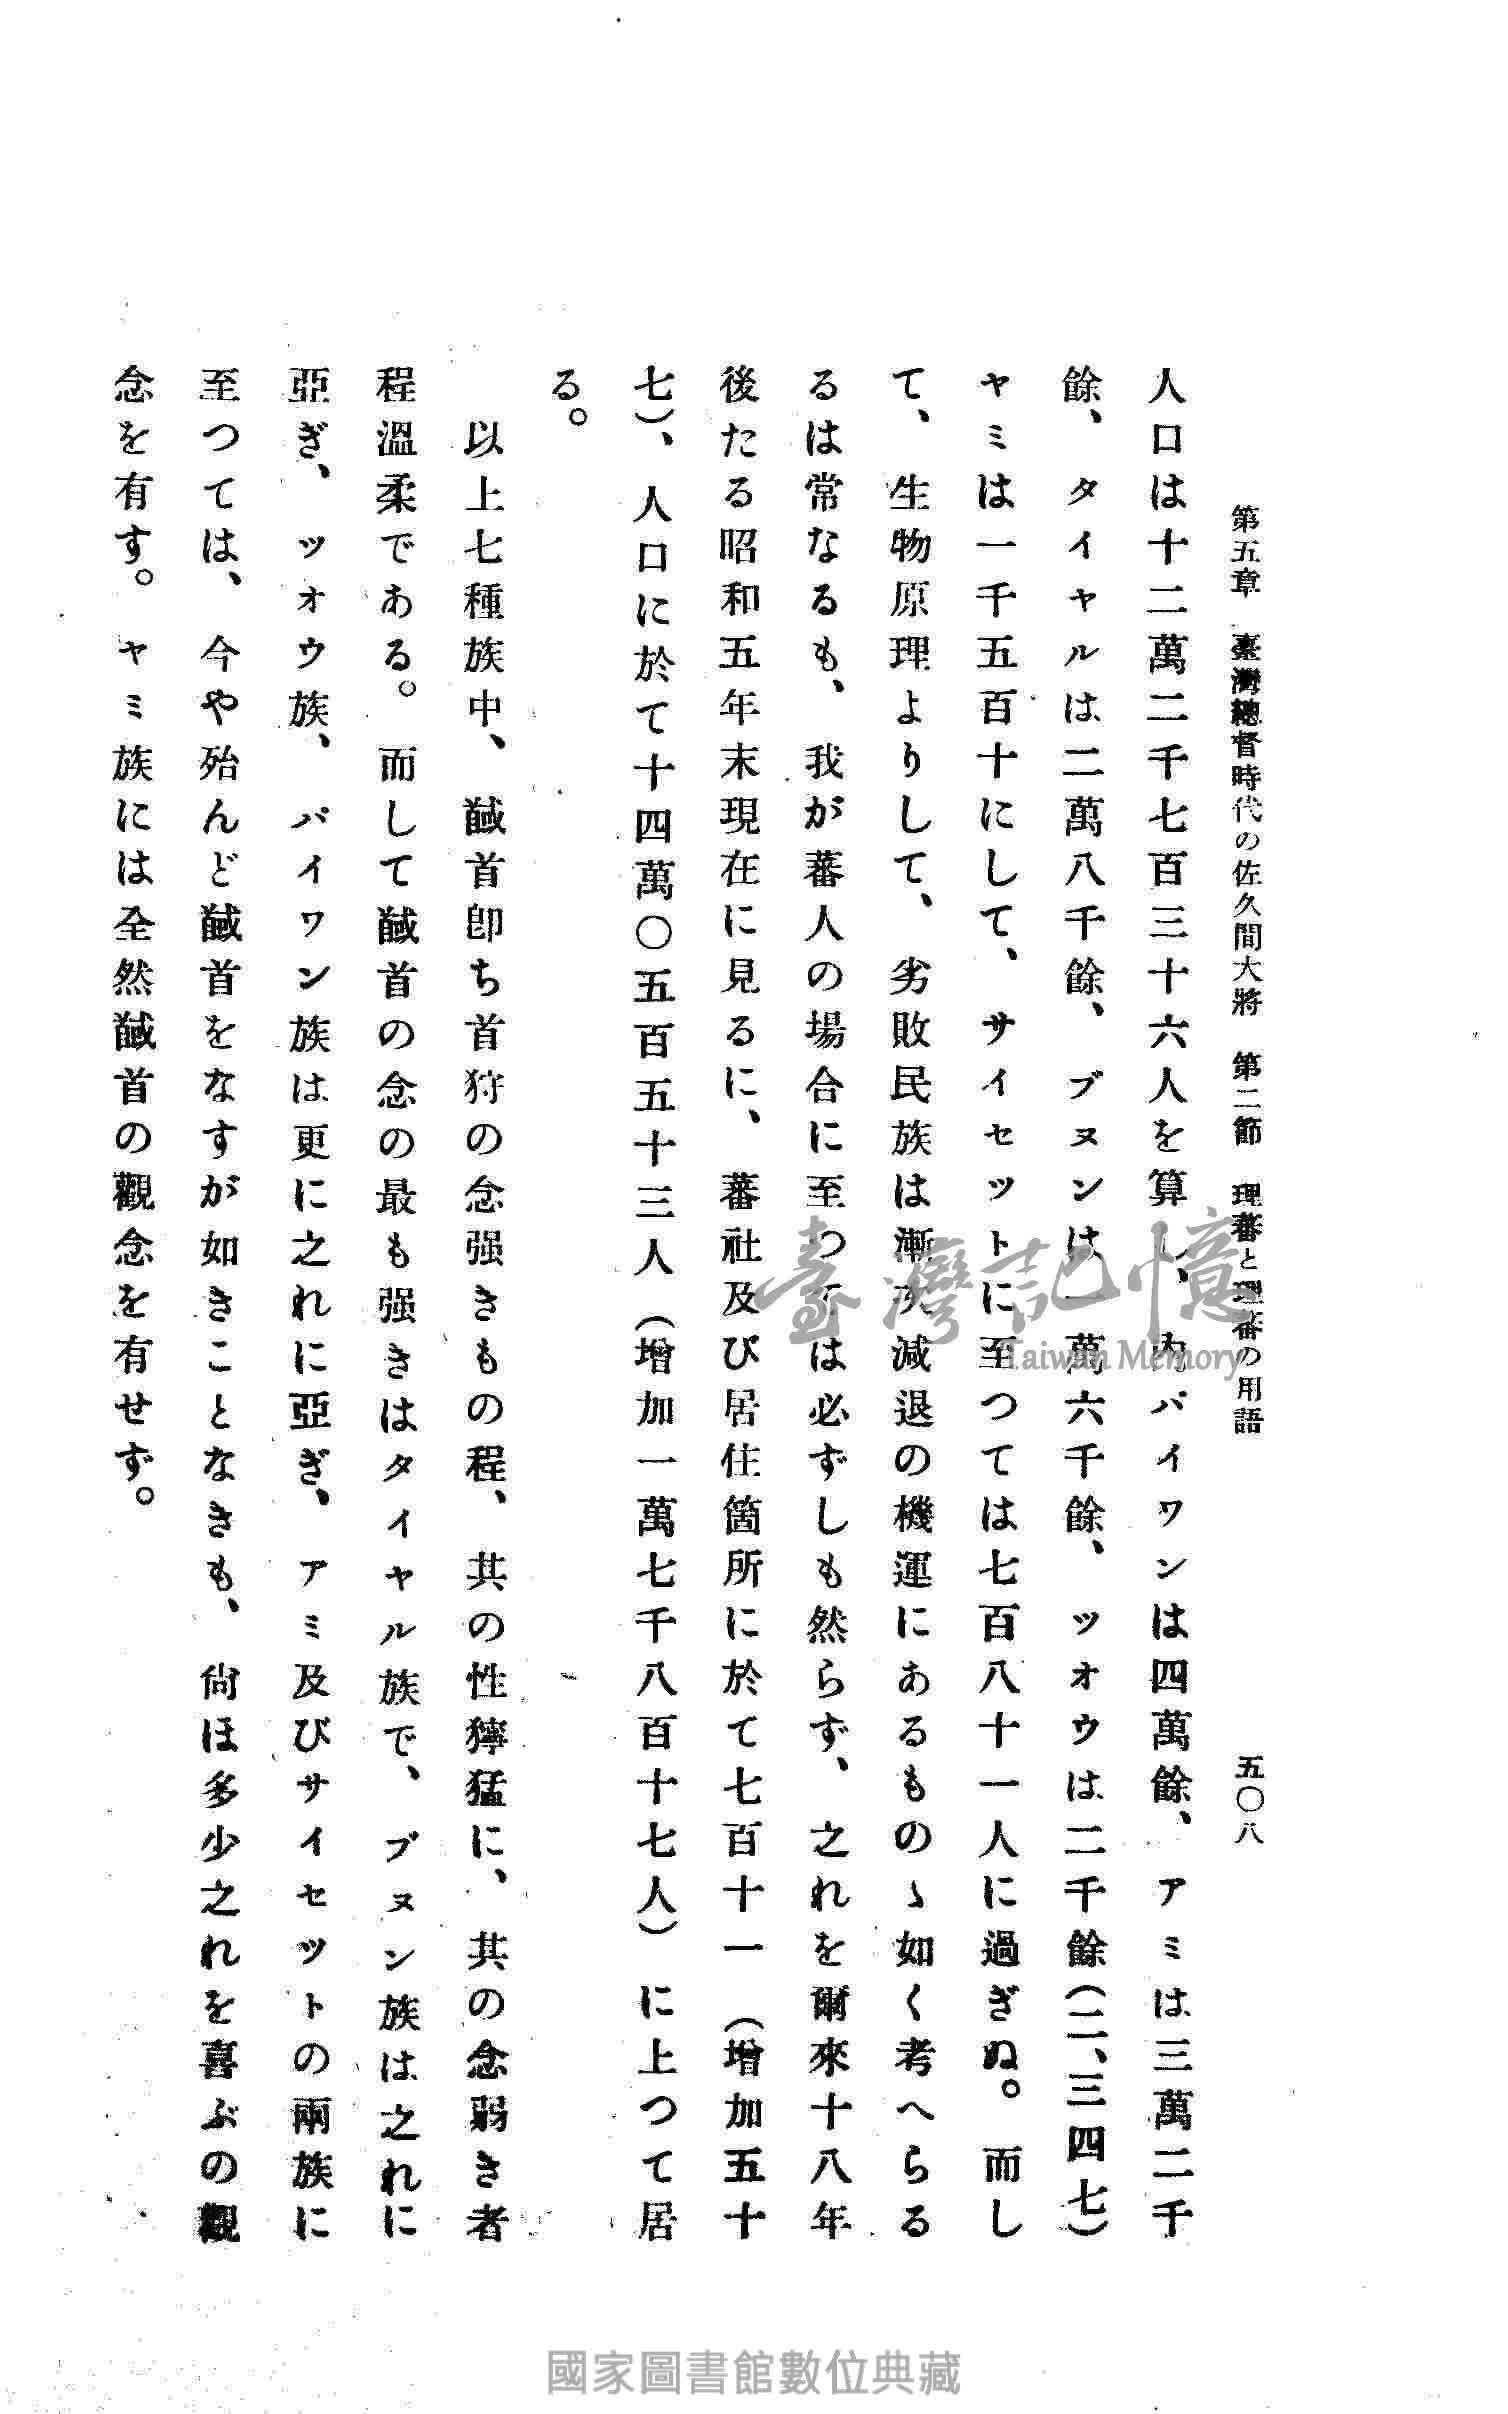 第五章　臺灣總督時代の佐久間大將　第二節　理蕃と理蕃の用語　五〇八
人口は十二萬二千七百三十六人を算し、內パイワンは四萬餘、アミは三萬二千
餘、タイヤルは二萬八千餘、ブヌンは一萬六千餘、ツオウは二千餘（二、三四七）
ヤミは一千五百十にして、サイセツトに至つては七百八十一人に過ぎぬ。而し
て、生物原理よりして、劣敗民族は漸次減退の機運にあるものゝ如く考へらる
るは常なるも、我が蕃人の場合に至つては必ずしも然らず、之れを爾來十八年
後たる昭和五年末現在に見るに、蕃社及び居住箇所に於て七百十一（增加五十
七）、人口に於て十四萬〇五百五十三人（增加一萬七千八百十七人）に上つて居
る。
以上七種族中、馘首卽ち首狩の念强きもの程、其の性獰猛に、其の念弱き者
程溫柔である。而して馘首の念の最も强きはタイヤル族で、ブヌン族は之れに
亞ぎ、ツオウ族、パイワン族は更に之れに亞ぎ、アミ及びサイセツトの兩族に
至つては、今や殆んど馘首をなすが如きことなきも、尙ほ多少之れを喜ぶの觀
念を有す。ヤミ族には全然馘首の觀念を有せず。
臺灣記憶
Taiwan Memory
國家圖書館數位典藏